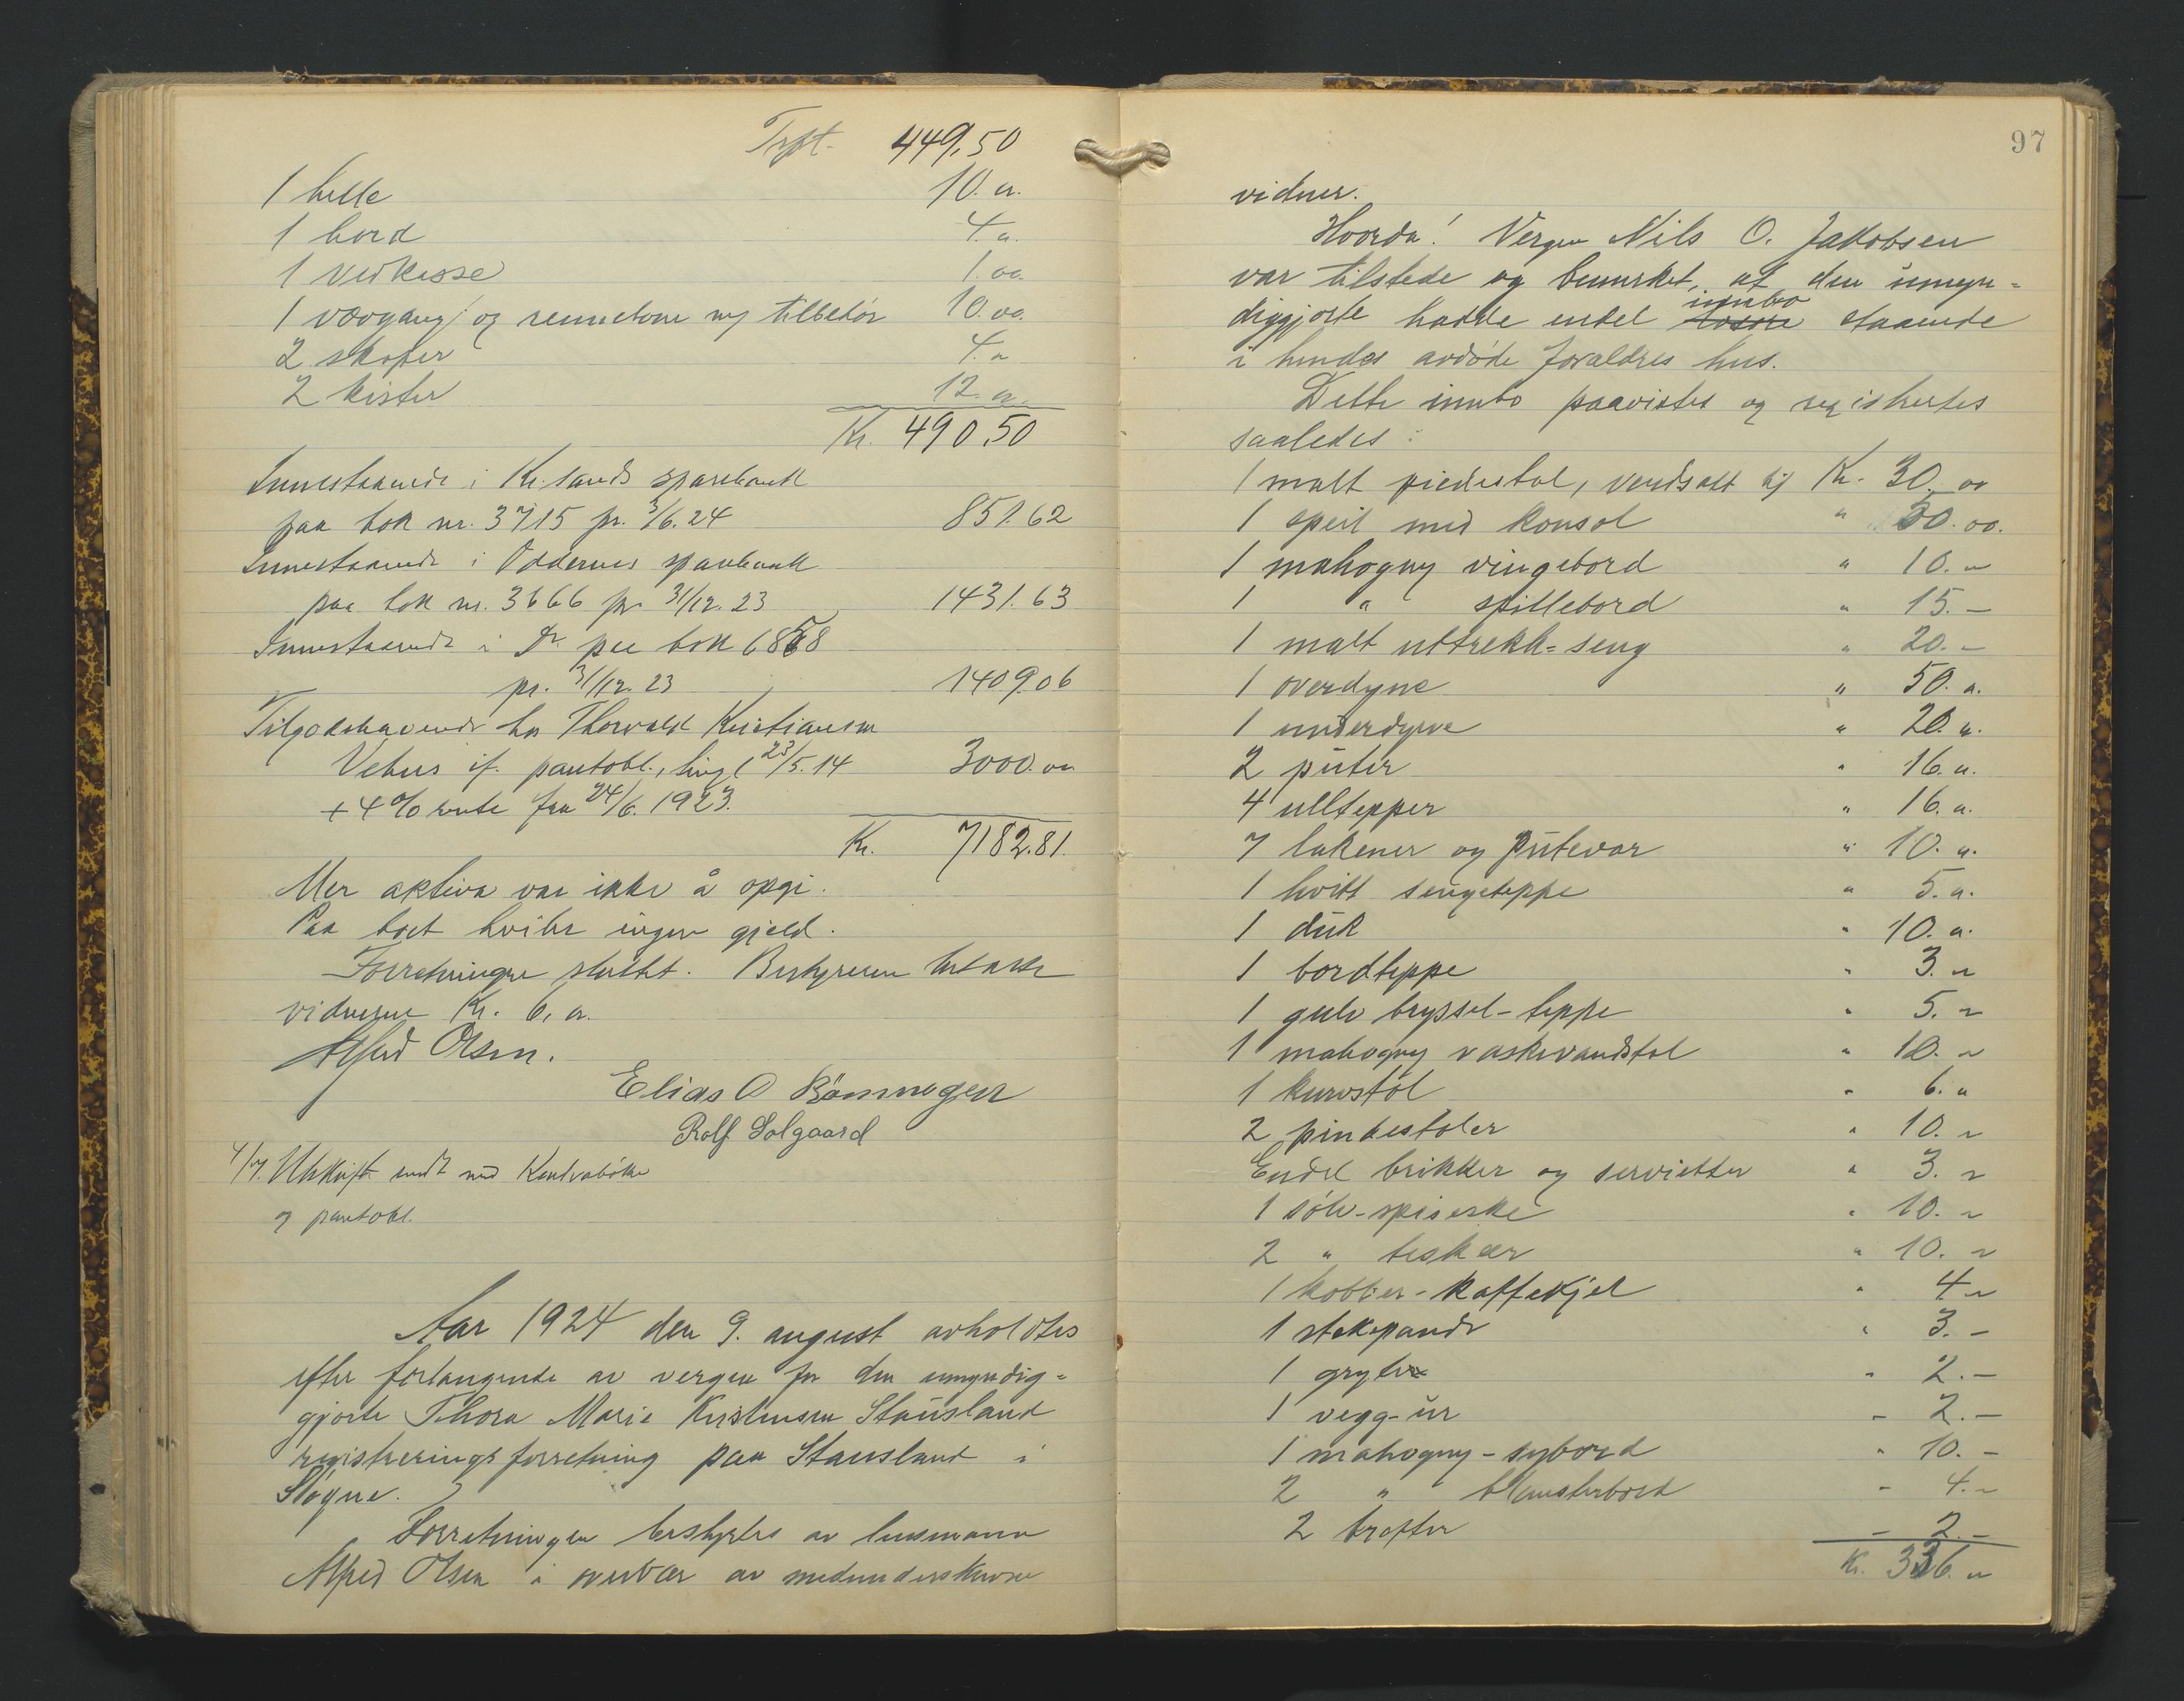 Trpt. 449,50
1 helle 10.00
1 bord 4.00
1 vedkasse 1.00
1 vævgang og rennebom m/ tilbehør 10.00
2 skaper 4.00
2 kister 12.00
Kr. 490,50
Innestaaende i Kr.sands sparebank
paa bok nr. 3715 pr. 3/6.24 851.62
Innestaaende i Oddernes sparebank
paa bok nr. 3666 pr. 31/12.23 1431.63
Innestaaende i Do paa bok 6858
pr. 31/12.23 1409.06
Tilgodehavende hos Thorvald Kristiansen
Vehus if. pantobl., tingl. 23/5.14 3000.00
+ 4 % rente fra 24/6. 1923.
Kr. 7182.81.
Mer aktiva var ikke å opgi.
Paa boet hviler ingen gjeld.
Forretningen sluttet. Bestyreren betalte
vidnerne Kr. 6,00.
Alfred Olsen.
Elias O Rönningen
Rolf Solgaard
4/7. Utskrift sendt med
og pantobl.
Aar 1924 den 9. august avholdtes
efter forlangende av vergen for den umyndig-
gjorte Thora Marie Kristensen Stausland
registreringsforretning paa Stausland i
Søgne.
Forretningen bestyrtes av lensmann
Alfred Olsen i overvær av medunderskrevne
97
vidner.
Hvorda! Vergen Nils O. Jakobsen
var tilstede og bemerket, at den umyn-
diggjorte hadde endel innbo staaende
i hendes avdøde foraldres hus.
Dette innbo paavistes og registrertes
saaledes:
1 malt piedestal, verdsatt til Kr. 30.00
1 speil med konsol " 30.00.
1 mahogny vingebord " 10.00
1 " spillebord " 15.-
1 malt uttrekk-seng " 20.-
1 overdyne " 50.00
1 underdyne " 20.00
2 puter " 16.00
4 ulltepper " 16.00
7 lakener og putevar " 10.00
1 hvitt sengeteppe " 5.00
1 duk " 10.00
1 bordteppe " 3.00
1 gulv bryssel-teppe " 5.00
1 mahogny vaskevandstol " 10.00
1 kurvstol " 6.00
2 pindestoler " 10.00
Endel brikker og servietter " 3.00
1 sølv-spiseske " 10.00
2 " teskeer " 10.00
1 kobber-kaffekjel " 4.00
1 stekepande " 3.-
1 gryte " 2.-
1 vegg-ur " 2.-
1 mahogny-sybord " 10.-
2 " blomsterbord " 4.00
2 trefter - 2.-
Kr. 316.00